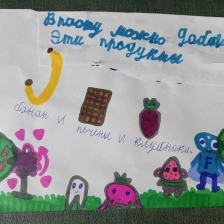 В пасту можно добав
Эти продукты
банан и печенье и клубника.
F